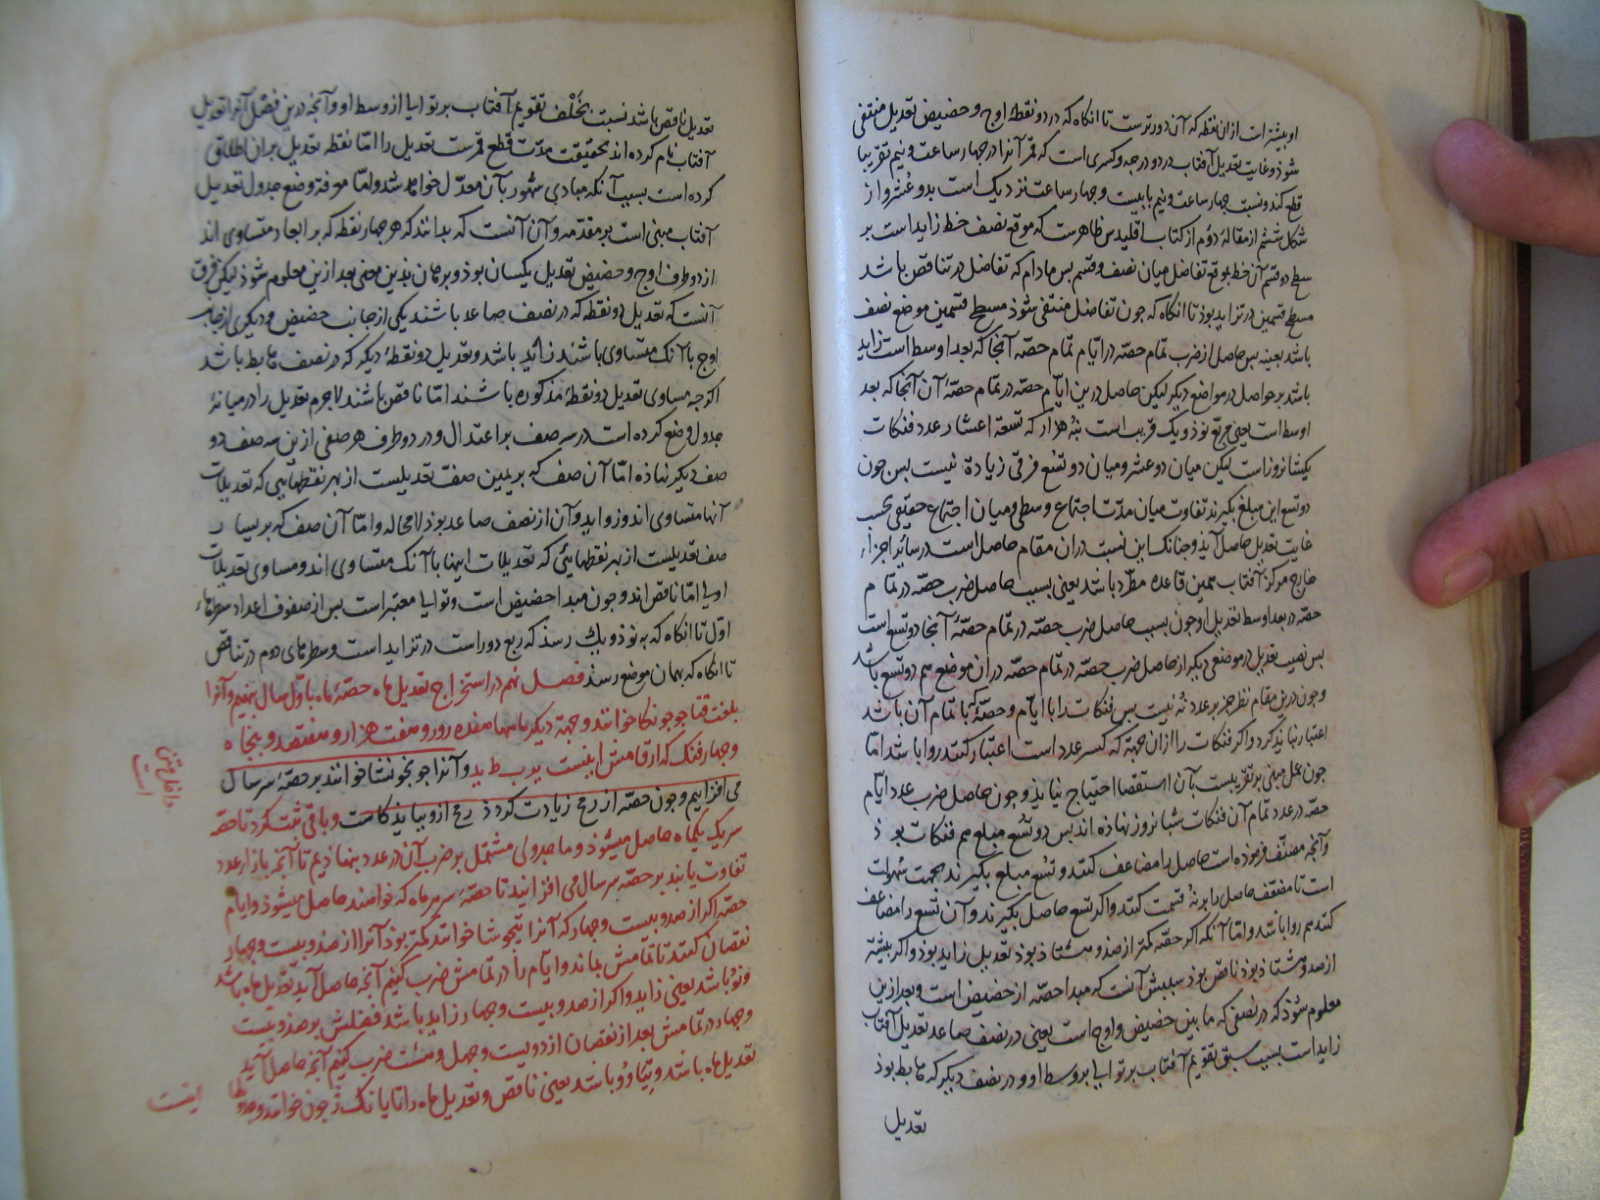 او بیشتر است ازان نقطه که آن دورترست تا انکاه که در دو نقطهٔ اوج و حضیض تعدیل منتفی
شوذ و غایت تعدیل آفتاب در دو درجه و کسری است که قمر آنرا در چهار ساعت و نیم تقریبا
قطع کند و نسبت چهار ساعت و نیم با بیست و چهار ساعت نزدیک است بدو عُشر و از
شکل ششم از مقالهٔ دوّم از کتاب اقلیدس ظاهرست که موقع نصف خط زاید است بر
سطح دو قسم آن خط بموقع تفاضل میان نصف و قسم بس مادام که تفاضل در تناقص باشد
مسطح قسمین در تزاید بوذ تا انکاه که جون تفاضل منتفی شوذ مسطح قسمین موضع نصف
باشد بعینه بس حاصل از ضرب تمام حصّه در ایّام تمام حصّه آنجا که بعد اوسط است زاید
باشد بر حواصل در مواضع دیکر لیکن حاصل درین ایّام حصّه در تمام حصّهٔ آن آنجا که بعد
اوسط است یعنی مربّع نوذ و یک قریب است بنه هزار که تسعة اعشار عدد فنکات
یکشبانروز است لیکن میان دو عشر و میان دو تسع فرقی زیادة نیست بس جون
دو تسع این مبلغ بکیرند تفاوت میان مدّت اجتماع وسطی و میان اجتماع حقیقی بحسب
غایت تعدیل حاصل آید و جنانک این نسبت دران مقام حاصل است در سایر اجزاء
خارج مرکز آفتاب همین قاعده مطّرد باشد یعنی بسبب حاصل ضرب حصّه در تمام
حصّه در بعد اوسط تعدیل او جون بسبب حاصل ضرب حصّه در تمام حصّهٔ آنجا دو تسع است
بس نصیب تعدیل در موضعی دیکر از حاصل ضرب حصّه در تمام حصّه دران موضع هم دو تسع باشد
و جون درین مقام نظر جز بر عدد نه نیست بس فنکات را با ایّام و حصّه که با تمام آن باشد
اعتبار نبایذ کرد و اکر فنکات را ازان جهة که کسر عدد است اعتبار کنند روا باشد امّا
جون عمل مبنی بر تقریبست بآن استقصا احتیاج نیایذ و جون حاصل ضرب عدد ایّام
حصّه در عدد تمام آن فنکات شبانروز نهاذه اند بس دو تسع مبلغ هم فنکات بوذ
و آنجه مصنّف فرموده است حاصل را مضاعف کنند و تسع مبلغ بکیرند بجهت سُهولت
است تا مضعّف حاصل را بر نهُ قسمت کنند و اکر تسع حاصل بکیرند و آن تسع را مضاعف
کنند هم روا باشد و امّا آنکه اکر حصّه کمتر از صد و هشتاذ بوذ تعدیل زاید بوذ و اکر بیشتر
از صد و هشتاذ بوذ ناقص بوذ سببش آنست که مبدا حصّه از حضیض است و بعد ازین
معلوم شوذ که در نصفی که ما بین حضیض و اوج است یعنی در نصف صاعد تعدیل آفتاب
زاید است بسبب سبق تقویم آفتاب بر توالی بر وسط او و در نصف دیکر که هابط بوذ
تعدیل
تعدیل ناقص باشد نسبت بخَلْف تقویم آفتاب بر توالی از وسط او و آنجه درین فصْل آنرا تعدیل
آفتاب نام کرده اند بحقیقت مدّت قطع قمرست تعدیل را امّا نقطه تعدیل بران اطلاق
کرده است بسبب آنکه مبادی شهور بآن معدّل خواهد شد و امّا موقع وضع جدول تعدیل
آفتاب مبنی است بر مقدّمه و آن آنست که بدانند که هر جهار نقطه که بر ابعاد متساوی اند
از دو طرف اوج و حضیض تعدیل یکسان بوذ و برهان بذین معنی بعد ازین معلوم شوذ لیکن فرق
آنست که تعدیل دو نقطه که در نصف صاعد باشند یکی از جانب حضیض و دیکری از جانب
اوج با آنک متساوی باشند زاید باشد و تعدیل دو نقطهٔ دیکر که در نصف هابط باشد
اکرجه مساوی تعدیل دو نقطهٔ مذکوره باشند امّا ناقص باشند لاجرم تعدیل را در میانهٔ
جدول وضع کرده است در سه صف بر اعتدال و در دو طرف هر صفی ازین سه صف دو
صف دیکر نهاذه امّا آن صف که بر یمین صفّ تعدیلست از بهر نقطهایی که تعدیلات
آنها متساوی اند و زواید و آن از نصف صاعد بوذ لامحاله و امّا آن صف که بر یسار
صف تعدیلست از بهر نقطهایی که تعدیلات اینها با آنک متساوی اند و مساوی تعدیلات
اولی امّا ناقص اند و جون مبدا حضیض است و توالی معتبر است بس از صفوف اعداد سطرهاء
اوّل تا انکاه که به نوذ و یک رسذ که ربع دور است در تزاید است و سطرهای دوم در تناقص
تا انکاه که بهمان موضع رسذ فصل نهم در استخراج تعدیل ماه حصّهٔ ماه باوّل سال بنهیم و آنرا
بلغت قتا جوجونکا خوانند و جهة دیکر ماهها هفده روز و هفت هزار و هفتصد و بنجاه
و جهار فنک که ارقامش اینست یر ب ط ید و آنرا جو بخونشا خوانند بر حصّهٔ سر سال
می افزاییم و جون حصّه از رمح زیادت کردد رمح ازو بیایذ کاست و باقی ثبت کرد تا حصّه
سر یک یکماه حاصل میشوذ و ما جدولی مشتمل بر ضرب آن در عدد بنهاذیم تا آنجه بازار عدد
تفاوت یابند بر حصّه سر سال می افزایند تا حصّهٔ سر هر ماه که خواهند حاصل میشوذ و ایام
حصّه اکر از صد و بیست و جهار که آنرا بیجو شا خوانند کمتر بوذ آنرا از صد و بیست و جهار
نقصان کنند تا تمامش بماند و ایّام را در تمامش ضرب کنیم آنجه حاصل آید تعدیل ماه باشد
و نو باشد یعنی زاید و اکر از صد و بیست و جهار زاید باشد فضلش بر صد و بیست
و جهار در تمامش بعد از نقصان از دویست و جهل و هشت ضرب کنیم آنجه حاصل آید
تعدیل ماه باشد و بیتا و وُ باشد یعنی ناقص و تعدیل ماه را تایانک ژجون خوانند و جدولها
اینست